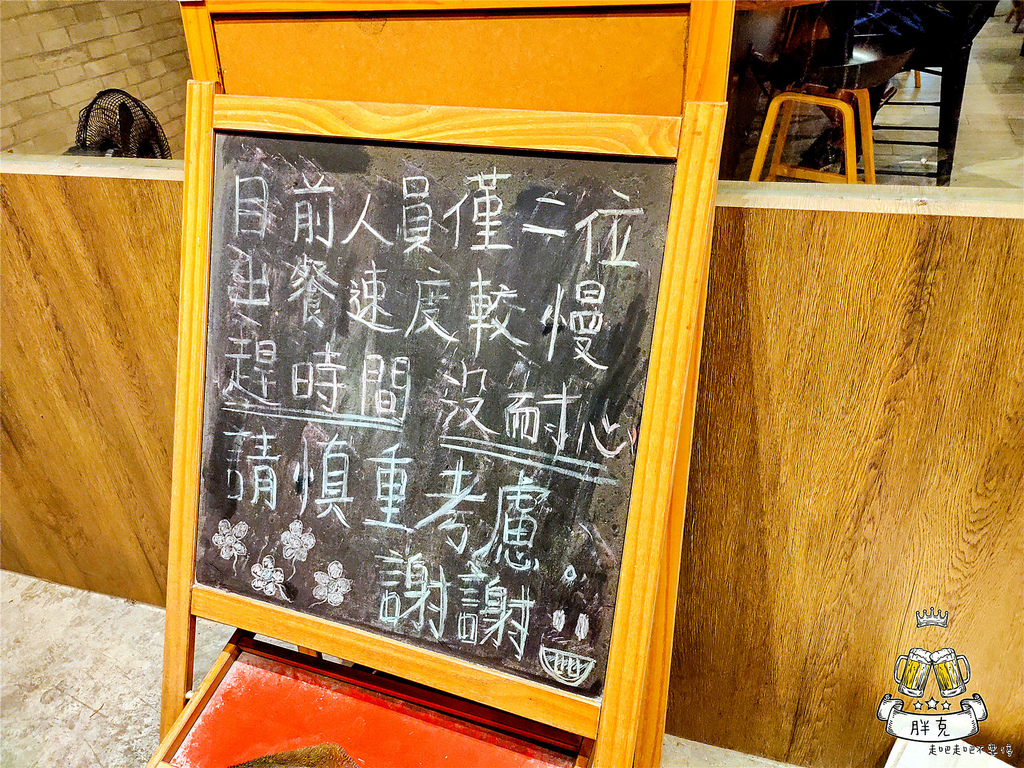 目前人員僅二位
出餐速度較慢
趕時間 沒耐心
請慎重考慮
謝謝
胖克
走吧走吧不要停